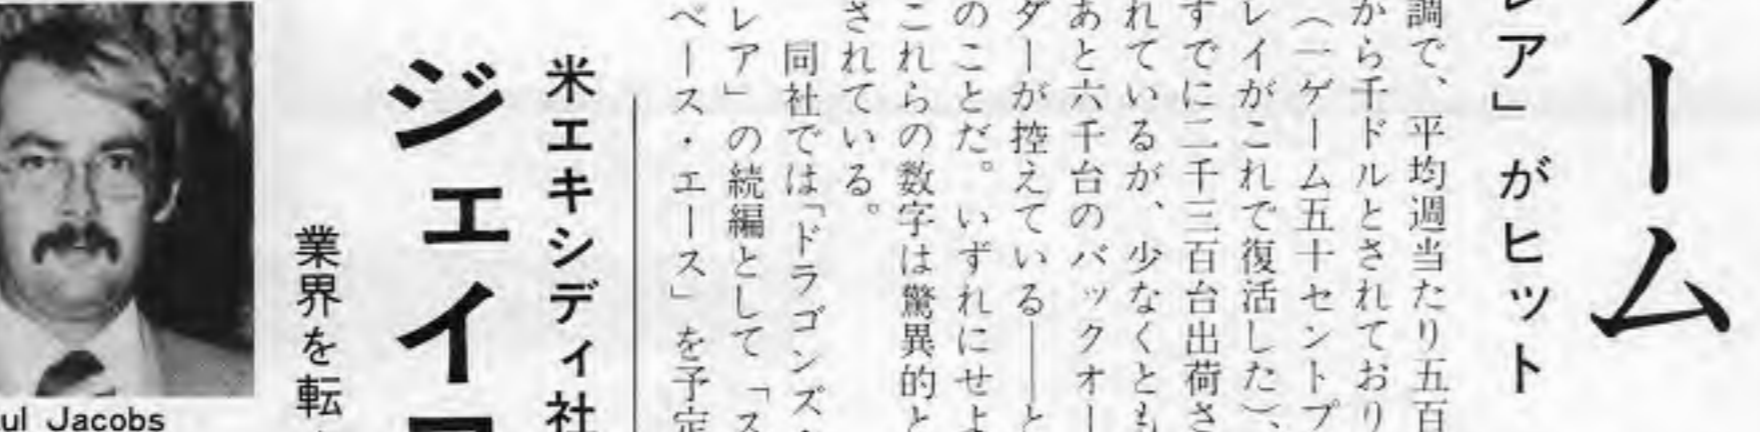 ーム
レア」がヒット
調で、平均週当たり五百
から千ドルとされており
（一ゲーム五十セントプ
レイがこれで復活した）、
すでに二千三百台出荷さ
れているが、少なくとも
あと六千台のバックオー
ダーが控えている――と
のことだ。いずれにせよ
これらの数字は驚異的と
されている。
同社では「ドラゴンズ・
レア」の続編として「ス
ペース・エース」を予定
米エキシディ社
ジェイ
業界を転
ul Jacobs